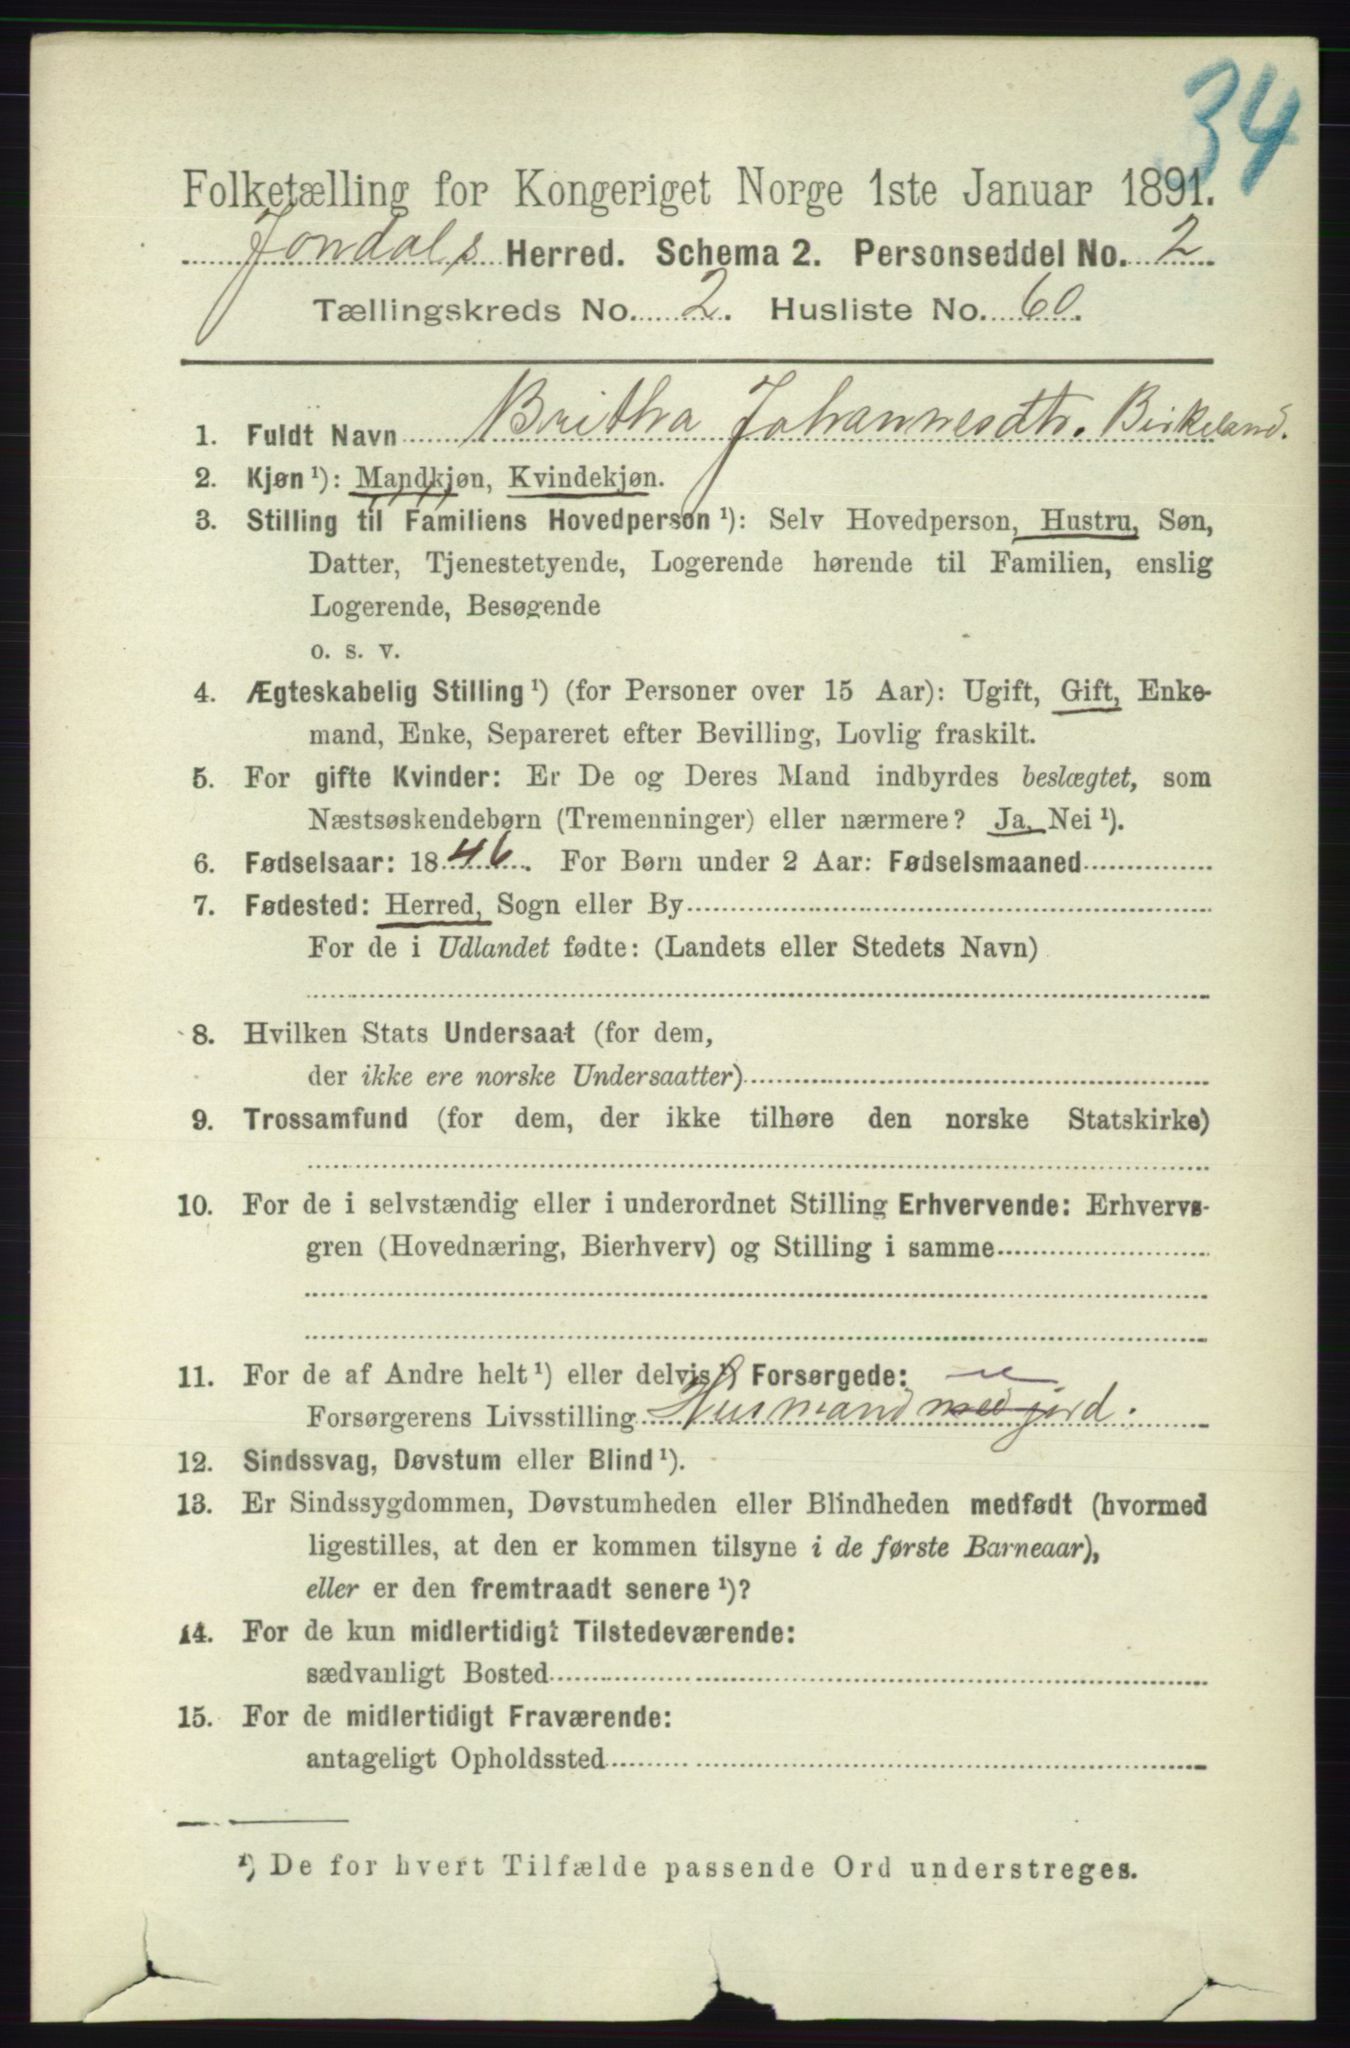 34
Folketælling for Kongeriget Norge 1ste Januar 1891.
Jondals Herred. Schema 2. Personseddel No. 2
Tællingskreds No. 2. Husliste No. 60.
1. Fuldt Navn Britha Johannesdtr. Birkeland.
2. Kjøn ¹): Mandkjøn, Kvindekjøn.
3. Stilling til Familiens Hovedperson ¹): Selv Hovedperson, Hustru, Søn,
Datter, Tjenestetyende, Logerende hørende til Familien, enslig
Logerende, Besøgende
o. s. v.
4. Ægteskabelig Stilling ¹) (for Personer over 15 Aar): Ugift, Gift, Enke-
mand, Enke, Separeret efter Bevilling, Lovlig fraskilt.
5. For gifte Kvinder: Er De og Deres Mand indbyrdes beslægtet, som
Næstsøskendebørn (Tremenninger) eller nærmere? Ja, Nei ¹).
6. Fødselsaar: 1846. For Børn under 2 Aar: Fødselsmaaned
7. Fødested: Herred, Sogn eller By
For de i Udlandet fødte: (Landets eller Stedets Navn)
8. Hvilken Stats Undersaat (for dem,
der ikke ere norske Undersaatter)
9. Trossamfund (for dem, der ikke tilhøre den norske Statskirke)
10. For de i selvstændig eller i underordnet Stilling Erhvervende: Erhvervs-
gren (Hovednæring, Bierhverv) og Stilling i samme
11. For de af Andre helt ¹) eller delvis ¹) Forsørgede:
Forsørgerens Livsstilling Husmand med jord.
12. Sindssvag, Døvstum eller Blind ¹).
13. Er Sindssygdommen, Døvstumheden eller Blindheden medfødt (hvormed
ligestilles, at den er kommen tilsyne i de første Barneaar),
eller er den fremtraadt senere ¹)?
14. For de kun midlertidigt Tilstedeværende:
sædvanligt Bosted
15. For de midlertidigt Fraværende:
antageligt Opholdssted
¹) De for hvert Tilfælde passende Ord understreges.